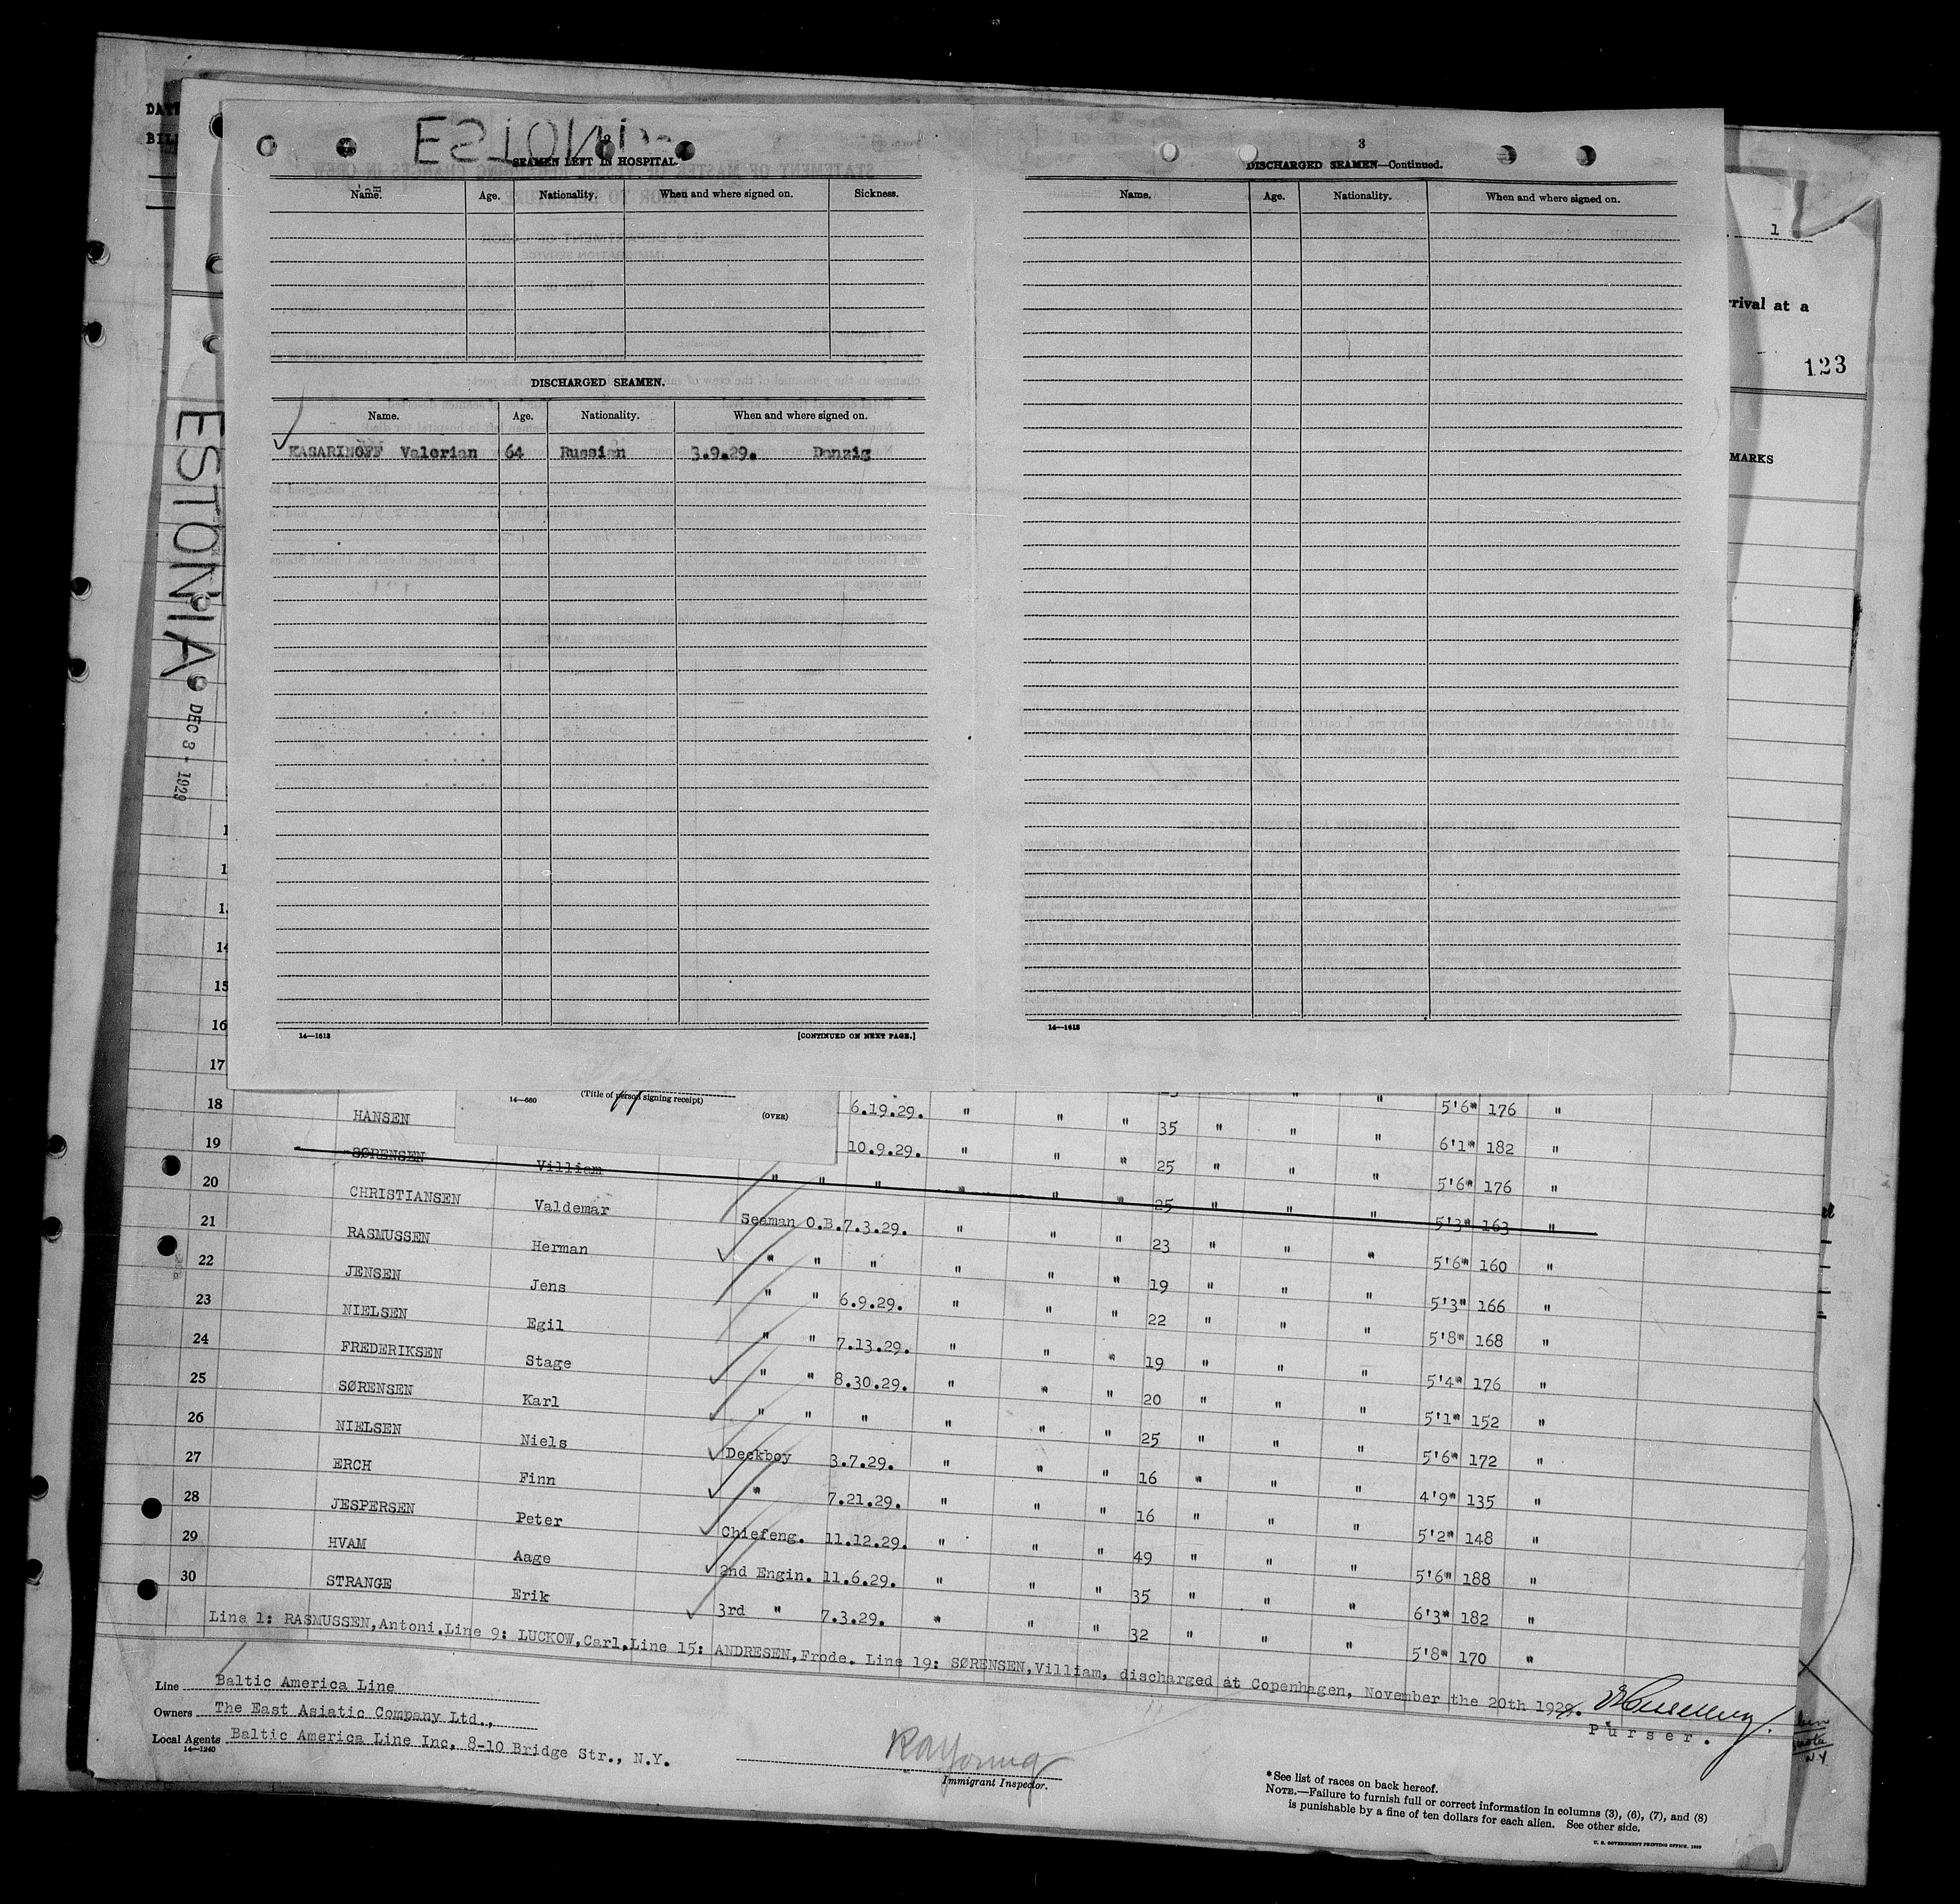 DAT
BIL
ESTONIA
2
SEAMEN LEFT IN HOSPITAL.
Name. Age. Nationality. When and where signed on. Sickness.
DISCHARGED SEAMEN.
Name. Age. Nationality. When and where signed on.
KASARINOFF Valerian 64 Russian 3.9.29. Danzig
14—1613 [CONTINUED ON NEXT PAGE.]
3
DISCHARGED SEAMEN—Continued.
Name. Age. Nationality. When and where signed on.
14—1613
1
rrival at a
123
MARKS
ESTONIA
DEC 3 - 1929
14
15
16
17
14—660 (Title of person signing receipt)
(OVER)
6.19.29. " " " 35 " " " 5'6" 176 "
18 HANSEN 10.9.29. " " " 25 " " " 6'1" 182 "
19 SØRENSEN Villiam " " " " " " 25 " " " 5'6" 176 "
20 CHRISTIANSEN Valdemar Seaman O.B. 7.3.29. " " " 23 " " " 5'3" 163 "
21 RASMUSSEN Herman " " " " " " 19 " " " 5'6" 160 "
22 JENSEN Jens " " 6.9.29. " " " 22 " " " 5'3" 166 "
23 NIELSEN Egil " " 7.13.29. " " " 19 " " " 5'8" 168 "
24 FREDERIKSEN Stage " " 8.30.29. " " " 20 " " " 5'4" 176 "
25 SØRENSEN Karl " " " " " " 25 " " " 5'1" 152 "
26 NIELSEN Niels Deckboy 3.7.29. " " " 16 " " " 5'6" 172 "
27 ERCH Finn " 7.21.29. " " " 16 " " " 4'9" 135 "
28 JESPERSEN Peter Chiefeng. 11.12.29. " " " 49 " " " 5'2" 148 "
29 HVAM Aage 2nd Engin. 11.6.29. " " " 35 " " " 5'6" 188 "
30 STRANGE Erik 3rd " 7.3.29. " " " 32 " " " 6'3" 182 "
5'8" 170 "
Line 1: RASMUSSEN,Antoni.Line 9: LUCKOW,Carl,Line 15: ANDRESEN,Frode. Line 19: SØRENSEN,Villiam, discharged at Copenhagen, November the 20th 1929.
Purser.
Line Baltic America Line
Owners The East Asiatic Company Ltd.,
Local Agents Baltic America Line Inc. 8-10 Bridge Str., N.Y.
14—1240
RA Young
Immigrant Inspector.
*See list of races on back hereof.
NOTE.—Failure to furnish full or correct information in columns (3), (6), (7), and (8)
is punishable by a fine of ten dollars for each alien. See other side.
U. S. GOVERNMENT PRINTING OFFICE. 1929
N.Y.